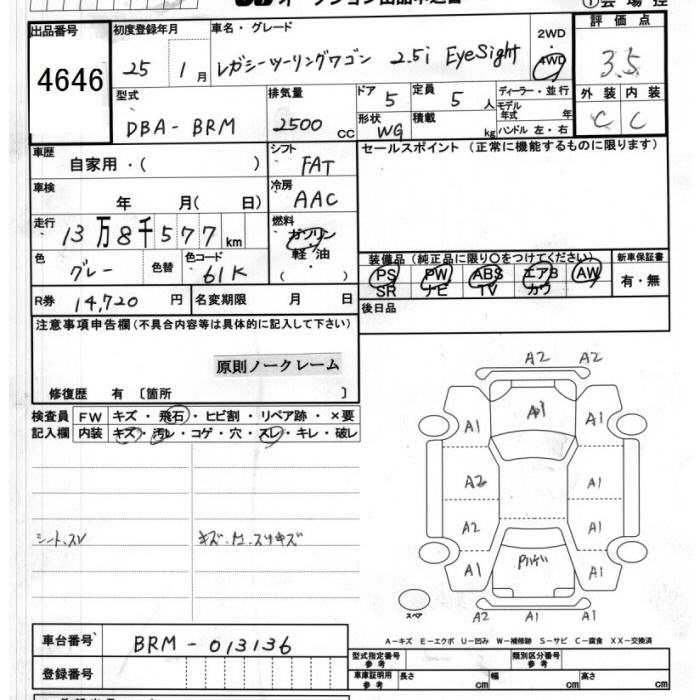 出品番号
4646
初度登録年月
25 1月
車名・グレード
レガシーツーリングワゴン 2.5i EyeSight
2WD
4WD
評価点
3.5
外装 内装
C C
型式
DBA-BRM
排気量
2500 CC
ドア 5
定員 5 人
ディーラー・並行
モデル年式 年
形状 WG
積載 kg
ハンドル 左・右
車歴
自家用・( )
シフト
FAT
セールスポイント (正常に機能するものに限ります)
車検
年 月( 日)
冷房
AAC
走行
13万8千577km
燃料
ガソリン
軽・油
( )
色
グレー
色替
色コード
61K
装備品 (純正品に限り○をつけてください)
PS PW ABS エアB AW
SR ナビ TV カワ
新車保証書
有・無
R券 14,720 円
名変期限 月 日
後日品
注意事項申告欄(不具合内容等は具体的に記入して下さい)
原則ノークレーム
修復歴 有 〔箇所 〕
検査員
記入欄
FW キズ・飛石・ヒビ割・リペア跡・×要
内装 キズ・汚レ・コゲ・穴・スレ・キレ・破レ
シート、スレ
A2 A2
A1 A1 A1
A2 A1
A2 A1
A1 A1
A2 A1 A1
スペア
A-キズ E-エクボ U-凹み W-補修跡 S-サビ C-腐食 XX-交換済
車台番号
BRM-013136
登録番号
型式指定番号
参考
類別区分番号
参考
車庫証明用
参考
長さ cm
幅 cm
高さ cm